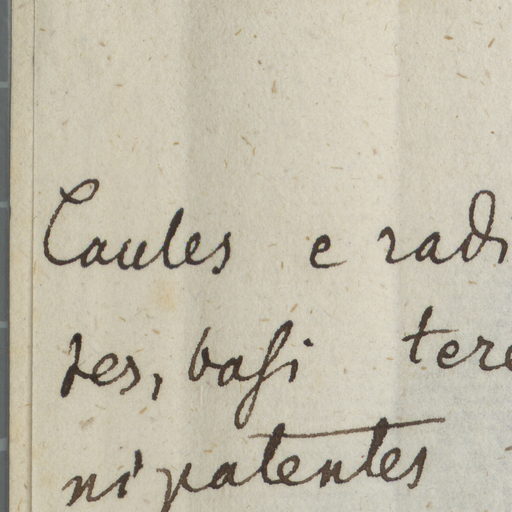 Caules e radi
tes, basi tere
nipatentes